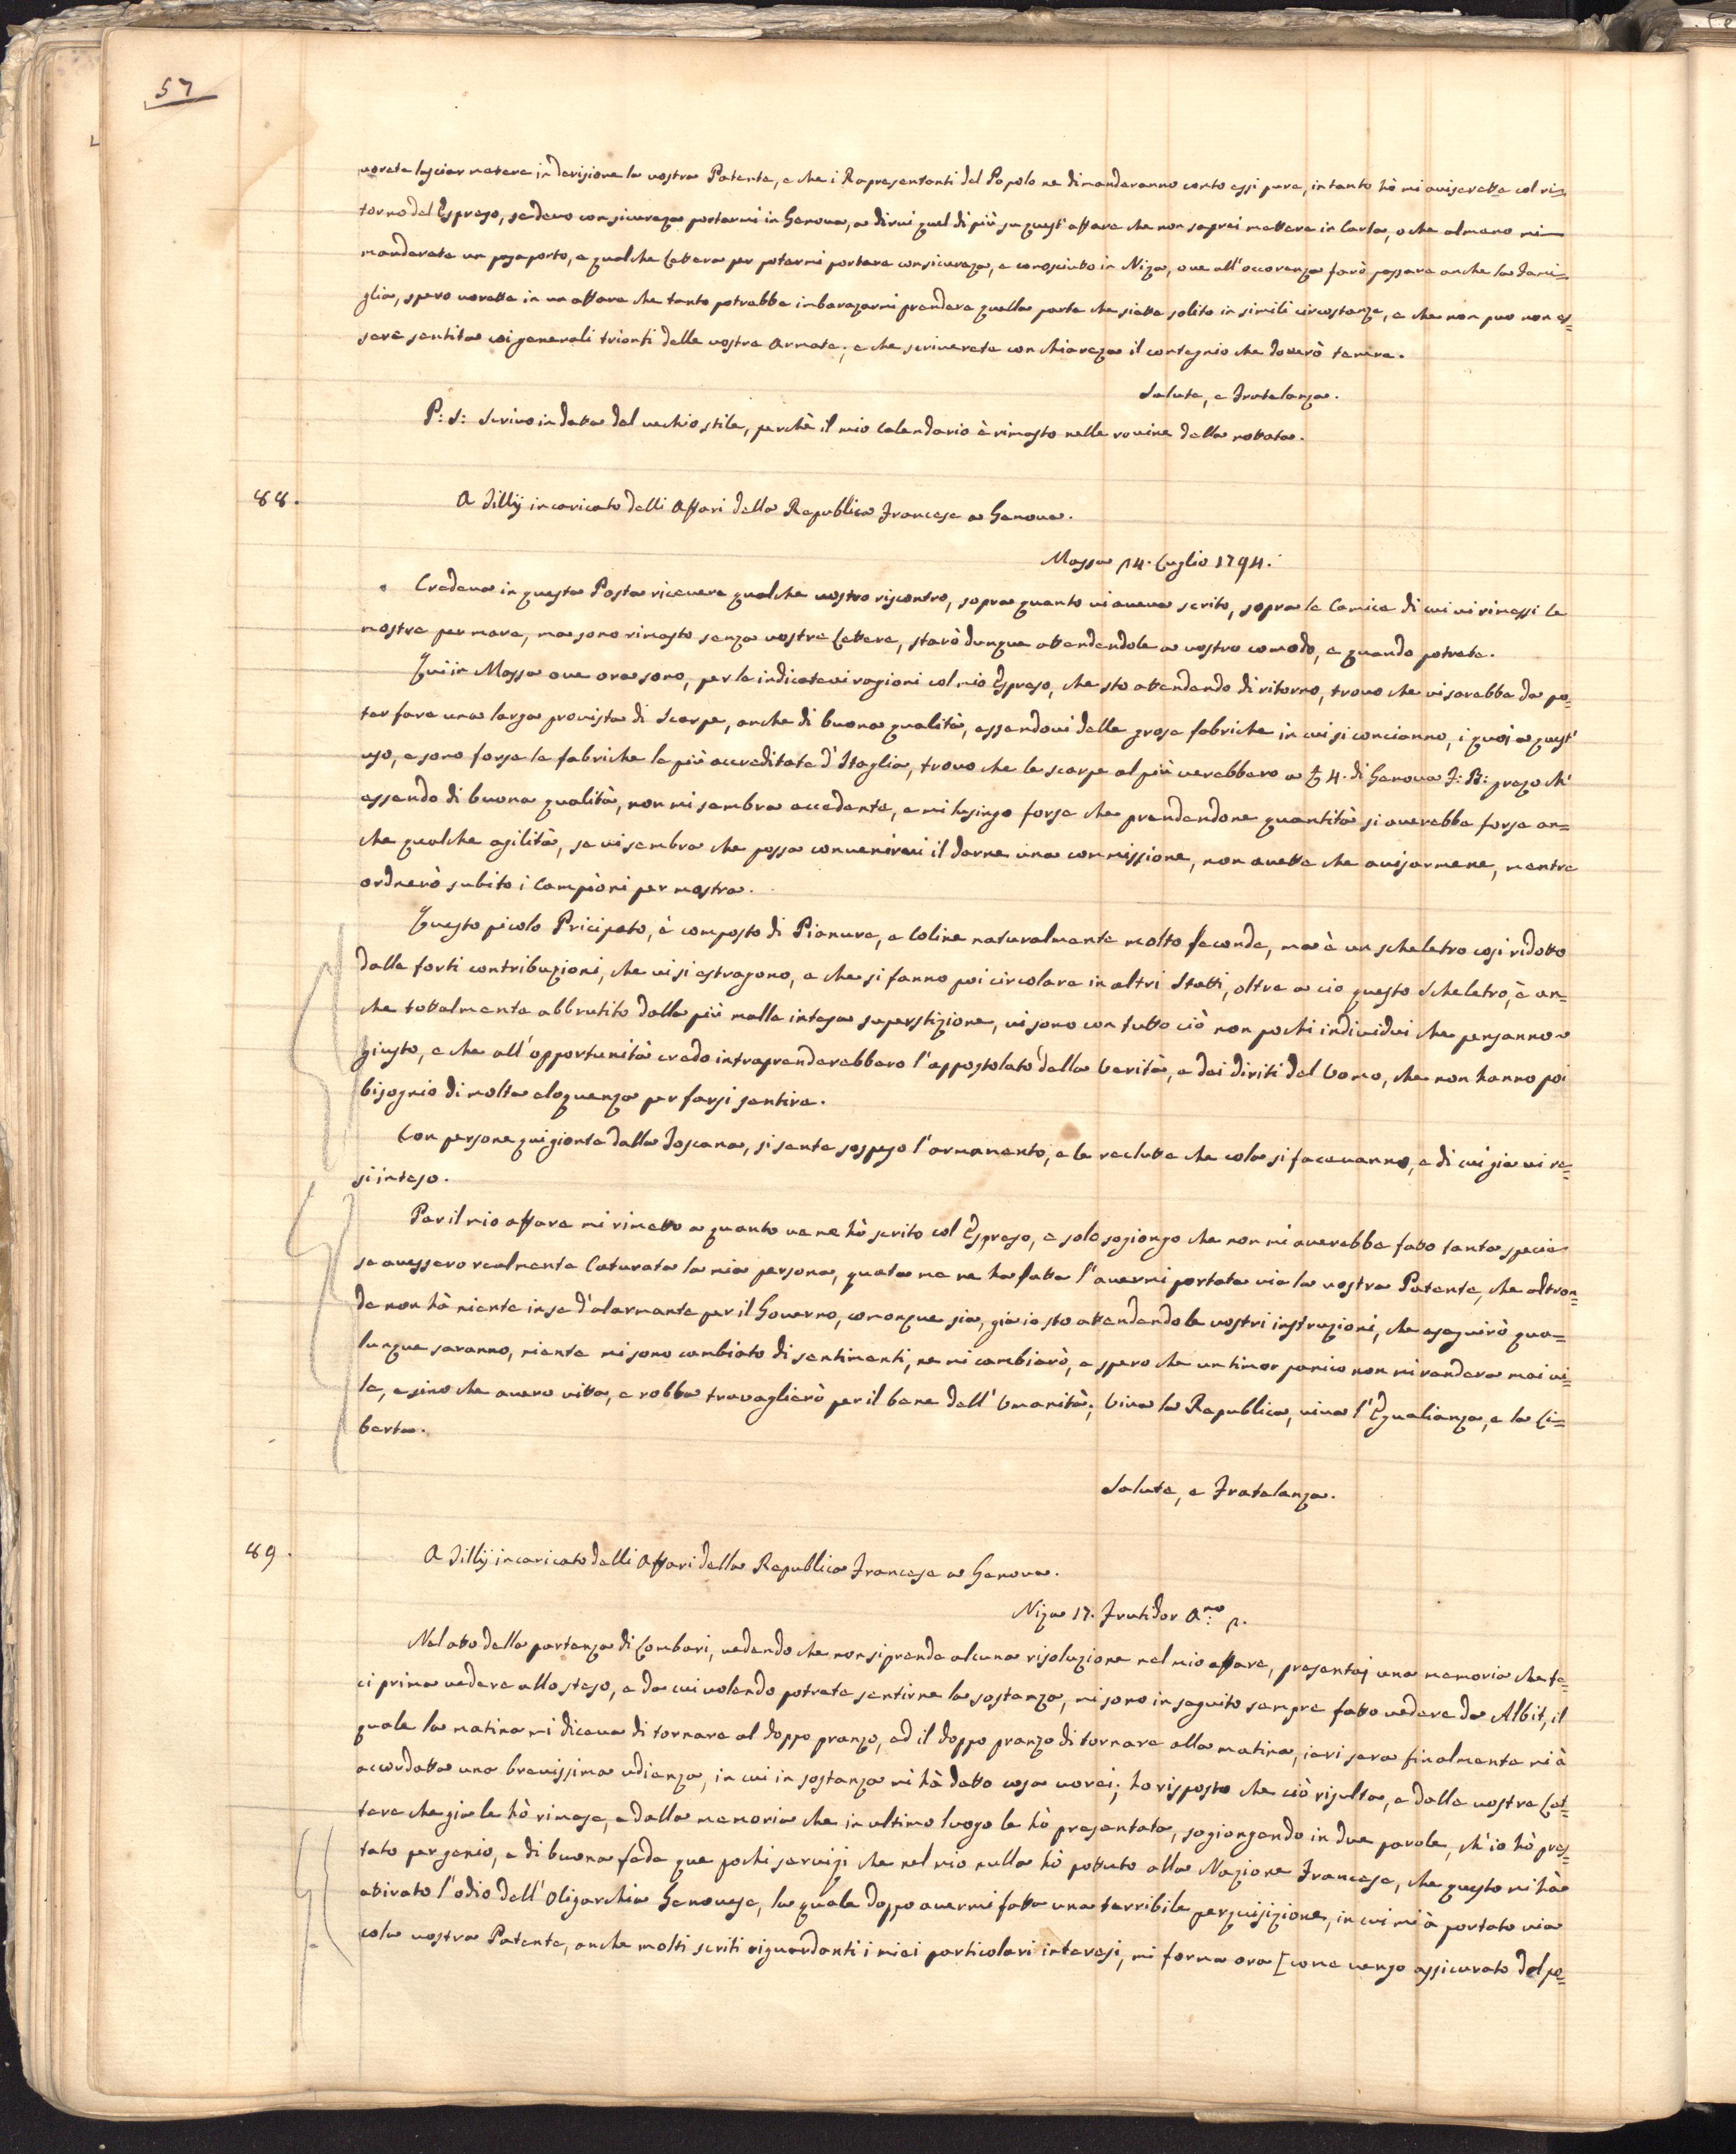 57
vorete lasciar metere in derisione la vostra Patente, e che i Rapresentanti del Popolo ne dimanderanno conto essi pure, in tanto hò mi aviserette col ri=
torno del Espresso, se devo con sicureza portarmi in Genova, a dirvi quel di più su quest'affare che non saprei mettere in Carta, o che almeno mi
manderete un passaporto, e qualche Lettera per potermi portare con sicureza, e conosciuto in Niza, ove all'occorenza farò passare anche la Fami=
glia, spero vorette in un affare che tanto potrebbe imbarazarmi prendere quella parte che siette solito in simili circostanze, e che non può non es=
sere sentita coi generali trionfi delle vostre Armate; e che scriverete con chiareza il contegnio che doverò tenere.
Salute, e Fratelanza.
P: S: Scrivo in data del vechio stile, perchè il mio Calendario è rimasto nelle rovine della nottata.
88.
A Tillij incaricato delli Affari della Republica Francese a Genova.
Massa 14. Luglio 1794.
Credeva in questa Posta ricevere qualche vostro riscontro, sopra quanto vi aveva scrito, sopra le Camice di cui vi rimessi le
mostre per mare, ma sono rimasto senza vostre Lettere, starò dunque attendendole a vostro comodo, e quando potrete.
Qui in Massa ove ora sono, per le indicatevi ragioni col mio Espresso, che sto attendendo di ritorno, trovo che vi sarebbe da po=
ter fare una larga provista di Scarpe, anche di buona qualità, essendovi delle grose fabriche in cui si concianno, i quoi a quest'
uso, e sono forse le fabriche le più accreditate d'Itaglia, trovo che le scarpe al più verebbero a £ 4. di Genova F: B: prezo ch'
essendo di buona qualità, non mi sembra accedente, e mi lusingo forse che prendendone quantità si averebbe forse an=
che qualche agilità, se vi sembra che possa convenirvi il darne una commissione, non avette che avisarmene, mentre
ordnerò subito i Campioni per mostra.
Questo picolo Pricipato, è composto di Pianure, e Coline naturalmente molto feconde, ma è un scheletro così ridotto
dalle forti contribuzioni, che vi si estragono, e che si fanno poi circolare in altri Statti, oltre a ciò questo Scheletro, è an=
che tottalmente abbrutito dalla più malle intesa superstizione, vi sono con tutto ciò non pochi individui che pensanno
giusto, e che all'opportunità credo intraprenderebbero l'appostolato della Verità, e dei diriti del Uomo, che non hanno poi
bisognio di molta eloquenza per farsi sentire.
Con persone qui gionte dalla Toscana, si sente sospeso l'armamento, e le reclutte che cola si facevanno, e di cui gia vi re=
si inteso.
Per il mio affare mi rimetto a quanto ve ne hò scrito col Espresso, e solo sogiongo che non mi averebbe fatto tanta specie
se avessero realmente Caturata la mia persona, quata me ne ha fatta l'avermi portata via la vostra Patente, che altron=
de non hà niente in se d'alarmante per il Governo, comonque sia, già io sto attendendo le vostri instruzioni, che eseguirò qua=
lunque saranno, niente mi sono cambiato di sentimenti, ne mi cambierò, e spero che un timor panico non mi rendera mai vi=
le, e sino che avero vitta, e robba travaglierò per il bene dell'Umanità; Viva la Republica, viva l'Egualianza, e la Li=
berta.
Salute, e Fratelanza.
89.
A Tillij incaricato delli Affari della Republica Francese a Genova.
Niza 17. Frutidor A:no 2.
Nel atto della partenza di Combari, vedendo che non si prende alcuna risoluzione nel mio affare, presentaj una memoria che fe=
ci prima vedere allo steso, e da cui volendo potrete sentirne la sostanza, mi sono in seguito sempre fatto vedere da Albit, il
quale la matina mi diceva di tornare al doppo pranzo, ed il doppo pranzo di tornare alla matina, ieri sera finalmente mi à
accordatta una brevissima udienza, in cui in sostanza mi hà detto cosa vorei; ho risposto che ciò risulta, e dalle vostre Let=
tere che gia le hò rimese, e dalla memoria che in ultimo luogo le hò presentata, sogiongendo in due parole, ch'io hò pres=
tato per genio, e di buona fede que pochi servizi che nel mio nulla hò pottuto alla Nazione Francese, che questo mi hà
attirato l'odio dell'Oligarchia Genovese, la quale doppo avermi fatta una terribile perquisizione, in cui mi à portato via
cola vostra Patente, anche molti scriti riguardanti i miei particolari interesi, mi forma ora [come vengo assicurato del pe=